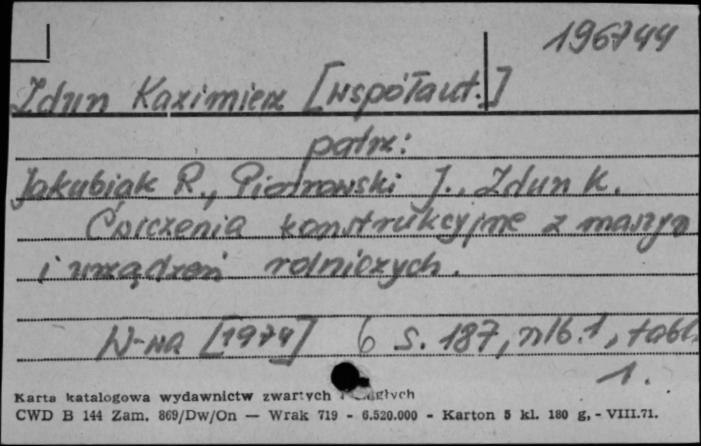 196744
Zdun Kazimierz [współaut.]
patrz:
Jakubiak R., Piotrowski J., Zdun K.
Ćwiczenia konstrukcyjne z maszyn
i urządzeń rolniczych.
W-wa [1974] 6 s. 187, nlb. 1, tabl.
1.
Karta katalogowa wydawnictw zwartych i ciągłych
CWD B 144 Zam. 869/Dw/On — Wrak 719 - 6.520.000 - Karton 5 kl. 180 g, - VIII.71.